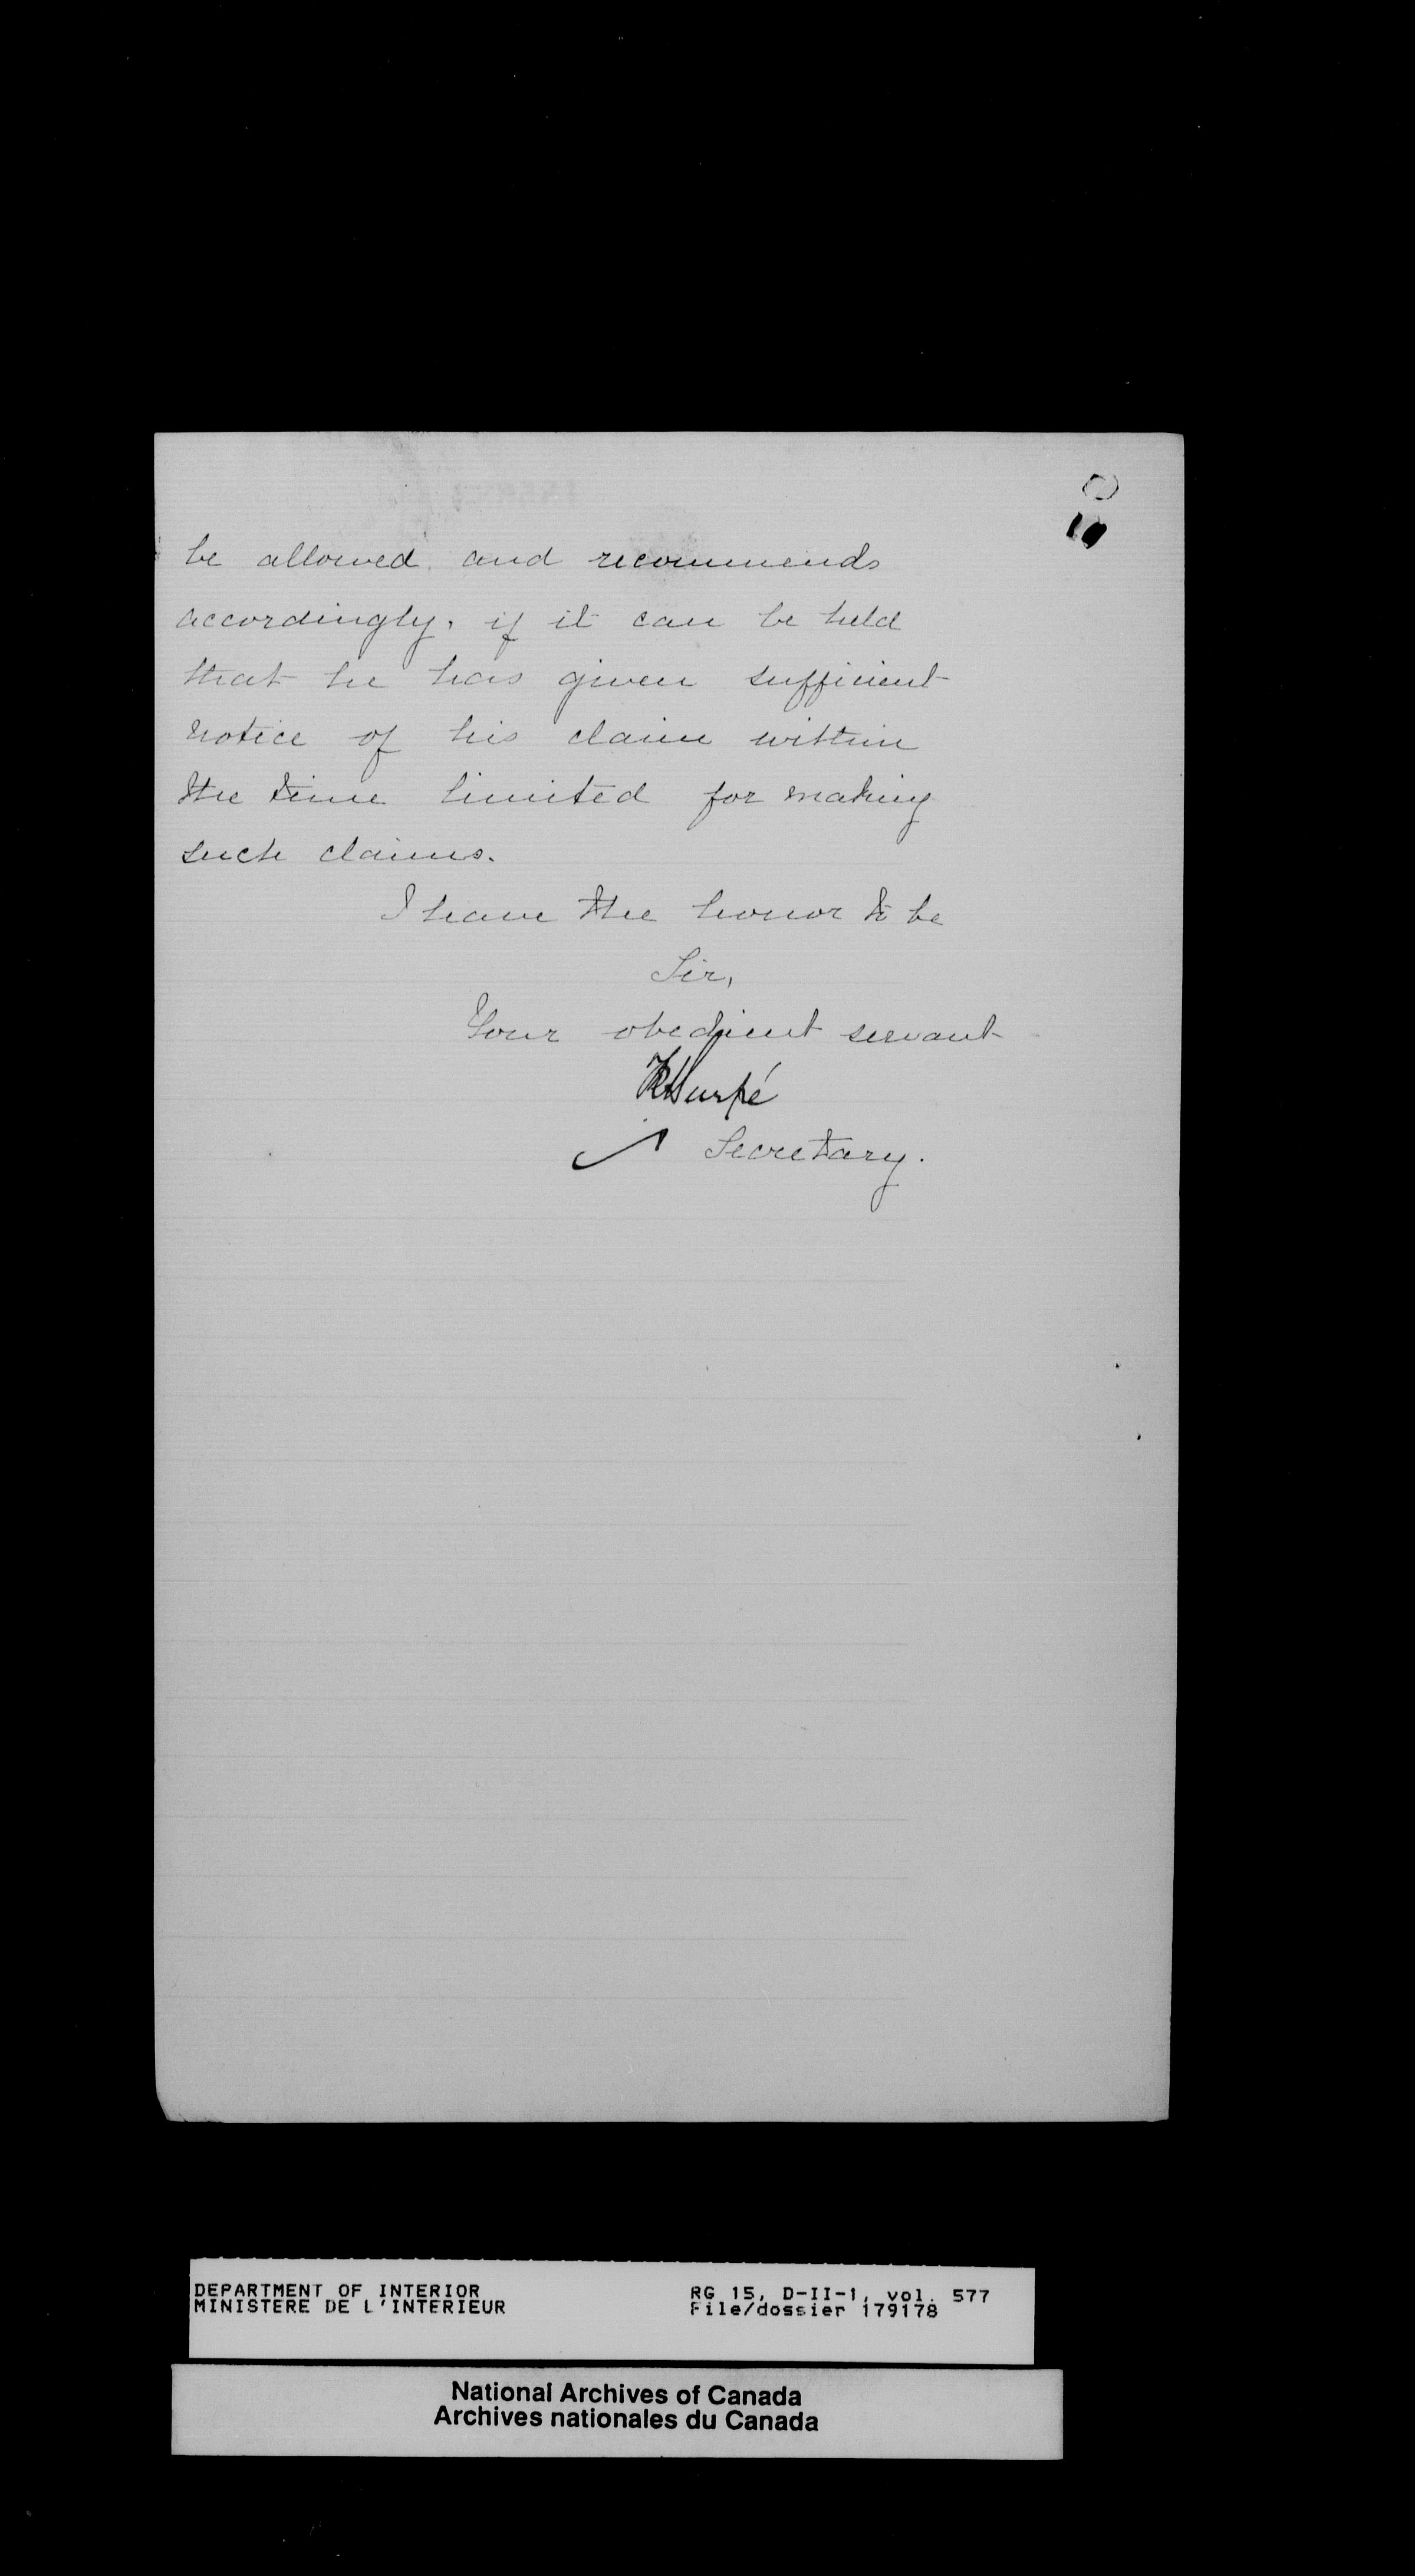 be allowed and recommends
accordingly, if it can be held
that he has given sufficient
notice of his claim within
the time limited for making
such claims.
I have the honor to be
Sir,
Your obedient servant
Secretary.
DEPARTMENT OF INTERIOR
MINISTERE DE L'INTERIEUR
RG 15, D-II-1, vol. 577
File/dossier 179178
National Archives of Canada
Archives nationales du Canada